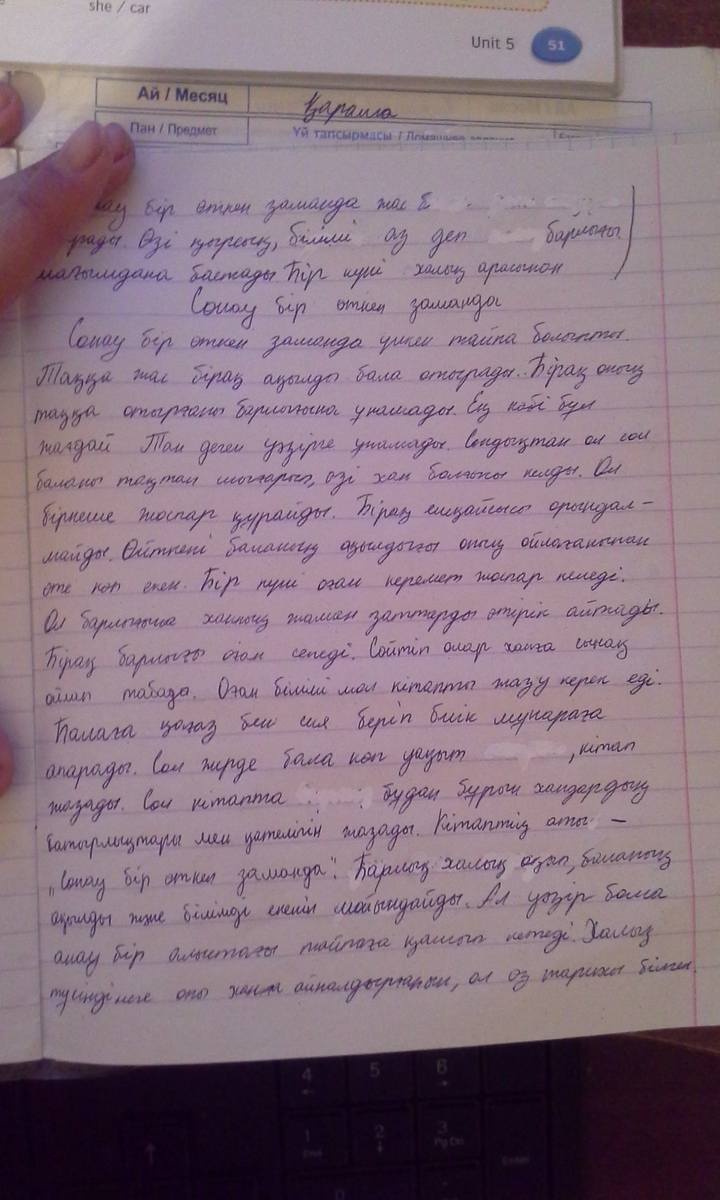 she / car
Unit 5 51
Ай / Месяц
Қаралма
Пән / Предмет Үй тапсырмасы / Домашнее задание
бір өткен заманда жас
Өзі қырсық, білімі аз деп барлығы
мазымдана бастады Бір күні халық арасынан
Сонау бір өткен заманда
Сонау бір өткен заманда үлкен тайпа болыпты.
Таққа жас бірақ ақылды бала отырады. Бірақ оның
таққа отырғаны барлығына ұнамады. Ең көбі бұл
жағдай Тан деген уәзірге ұнамады. Сондықтан ол сол
баланы тақтан шығарып, өзі хан болғысы келді. Ол
бірнеше жоспар құрайды. Бірақ ешқайсысы орындал-
майды. Өйткені баланың ақылдығы оның ойлағанынан
өте көп екен. Бір күні оған керемет жоспар келеді.
Ол барлығына ханның жаман заттарды өтірік айтады.
Бірақ барлығы оған сенеді. Сөйтіп олар ханға сынақ
ойлап табада. Оған білімі мол кітапты жазу керек еді.
Балаға қағаз бен сия беріп биік мұнараға
апарады. Сол жерде бала көп уақыт , кітап
жазады. Сол кітапта бұдан бұрын хандардың
батырлықтары мен қателігін жазады. Кітаптің аты –
„Сонау бір өткен заманда". Барлық халық оқып, баланың
ақылды және білімді екенін мойындайды. Ал уәзір бала
анау бір алыстағы тайпаға қашып кетеді. Халық
оны ханға айналдырғанын, ол өз тарихы білген.
4 5 6
1 2 3
End PgDn
Enter
0